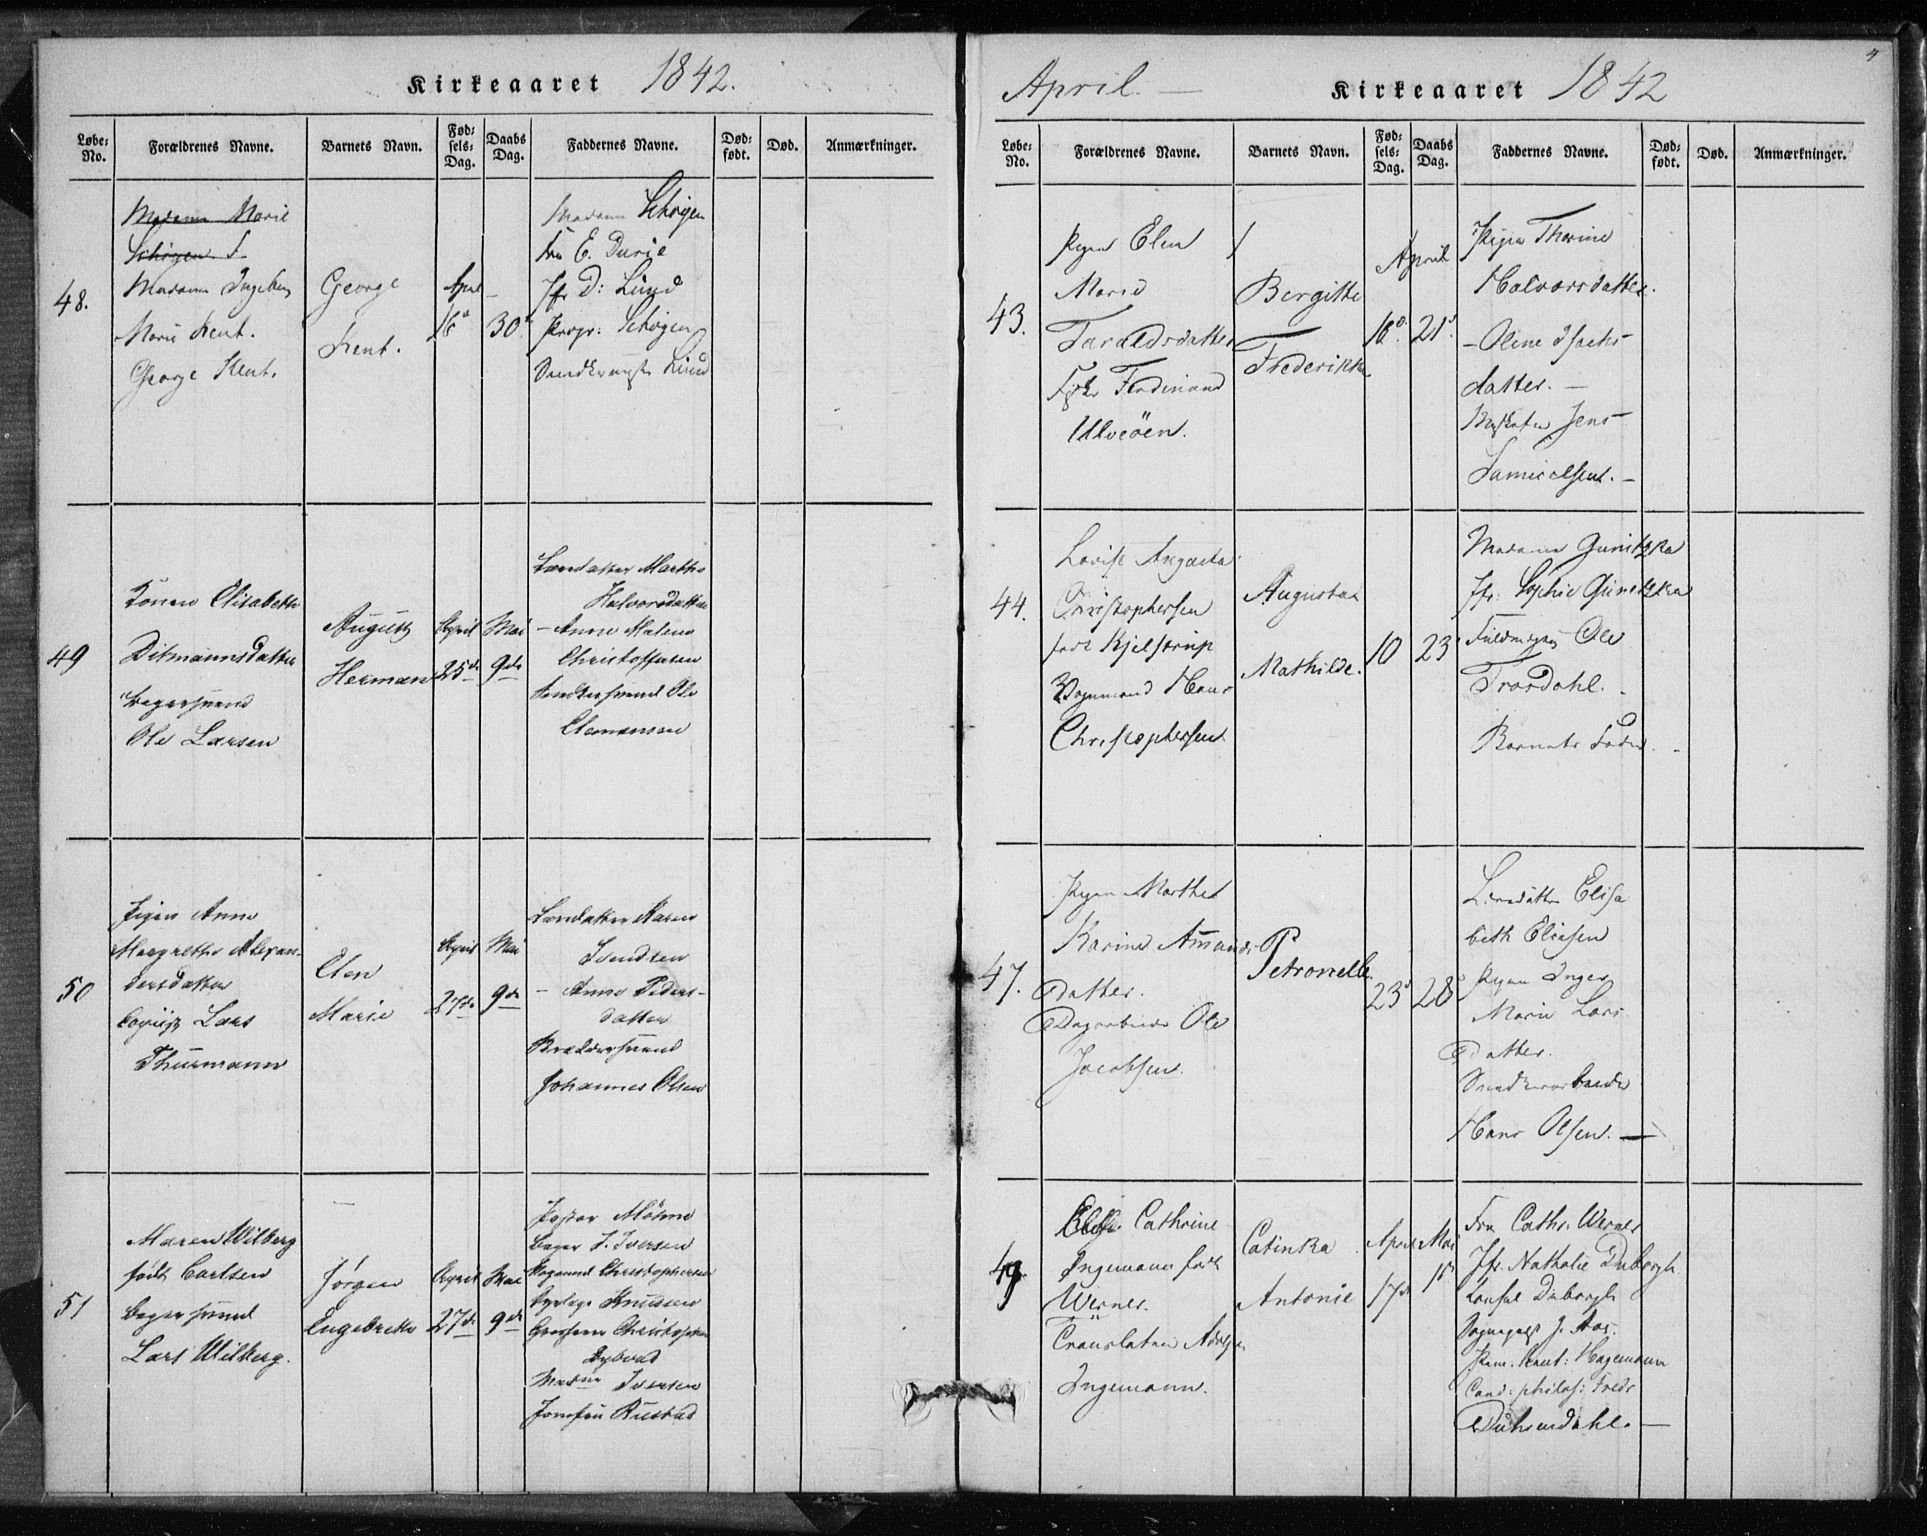 Kirkeaaret 1842.
Løbe-No. Forældrenes Navne. Barnets Navn. Fød-sels-Dag. Daabs Dag. Faddernes Navne. Død-født. Død. Anmærkninger.
48.
Madame Marie
Schøyen f.
Madame Ingeborg
Marie Kent.
George Kent.
George
Kent.
April
16d
30t
Madame Schøyen
Fru E. Durie
Jfr D: Lund
Propr: Schøyen
Snedkersvend Lund
49
Konen Elisabeth
Ditmannsdatter
Bagersvend
Ole Larsen
August
Herman
April
25de
Mai
9de
Læredatter Marthe
Halvorsdatter
- Anne Malene
Christoffersen
Snedkersvend Ole
Clemensen
50
Pigen Anne
Margrethe Alexan-
dersdatter
Copiist Lars
Thurmann
Elen
Marie
April
27de
Mai
9de
Læredatter Karen
- Anne Peders-
datter
Johannes Olsen
51
Maren Wilberg
født Carlsen
Bagersvend
Lars Wilberg.
Jørgen
Engebreth
April
27de
Mai
9de
Bager J. Iversen
Christophersen
Knudsen
Christopher
Dybvad
Madme Iversen
Jomfru Rustad
April. — Kirkeaaret 1842
4
Løbe-No. Forældrenes Navne. Barnets Navn. Fød-sels-Dag. Daabs Dag. Faddernes Navne. Død-født. Død. Anmærkninger.
43.
Pigen Elen
Marie
Taraldsdatter
Ferdinand
Ulveöen.
Bergitte
Frederikke
April
16d.
21d.
Pigen Thorine
Halvorsdatter.
- Oline Isachs-
datter. —
Jens
Samuelsen. —
44.
Lovise Augusta
Christophersen
født Kjelstrup
Vognmand Hans
Christophersen
Augusta
Mathilde.
10
23d
Madame Gunitzka
Jfr: Sophie Gunitzka
Fuldmægtig Ole
Trosdahl.
Barnets Fader.
47.
Pigen Marthe
Karine Amunds-
datter.
Dagarbeider Ole
Jacobsen.
Petronelle.
23d
28d
Læredatter Elisa
beth Eliesen
Pigen Inger
Marie Lars
datter.
Snedkerarbeider
Hans Olsen. —
49
Elise Cathrine
Ingemann født
Werner.
Translatør Adolph
Ingemann.
Catinka
Antonie
April
17de
Mai
1ste
Fru Cathr. Werner
Jfr. Nathalie Duborgh.
Konsul Duborgh
Sognepræst J. Aas.
Prem. Lieut: Hagemann
Cand: philos: Fredr
Duhsendahl. —